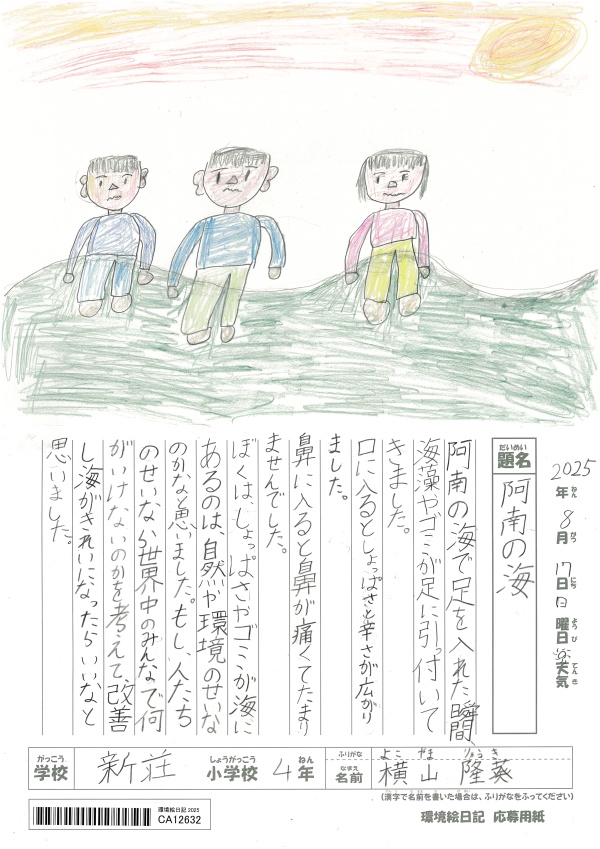 2025年 8月 17日 日曜日 天気
ねん がつ にち ようび てんき
だいめい
題名
阿南の海
阿南の海で足を入れた瞬間、
海藻やゴミが足に引っ付いて
きました。
口に入るとしょっぱさと辛さが広がり
ました。
鼻に入ると鼻が痛くてたまり
ませんでした。
ぼくは、しょっぱさやゴミが海に
あるのは、自然や環境のせいな
のかなと思いました。もし、人たち
のせいなら世界中のみんなで何
がいけないのかを考えて、改善
し海がきれいになったらいいなと
思いました。
がっこう しょうがっこう ねん
学校 新荘 小学校 4年
ふりがな よこ やま りゅう き
なまえ
名前 横山 隆葵
(漢字で名前を書いた場合は、ふりがなをふってください)
環境絵日記 2025
CA12632
環境絵日記 応募用紙